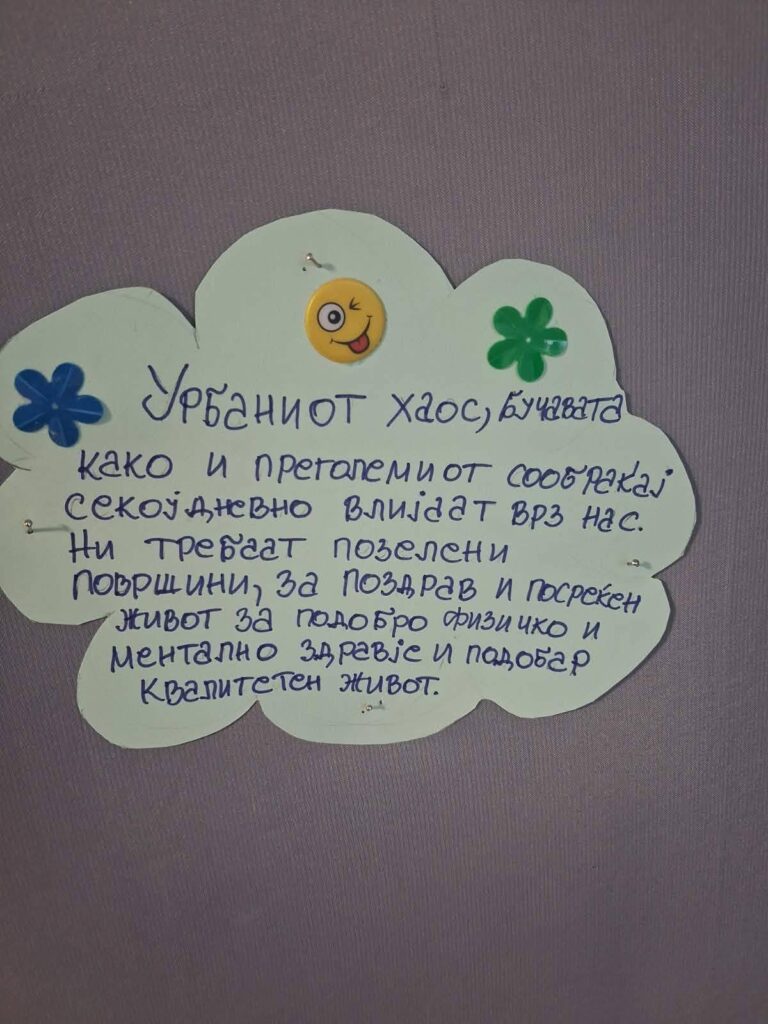 Урбаниот хаос, бучавата
како и преголемиот сообраќај
секојдневно влијаат врз нас.
Ни требаат позелени
површини, за поздрав и посреќен
живот за подобро физичко и
ментално здравје и подобар
квалитетен живот.